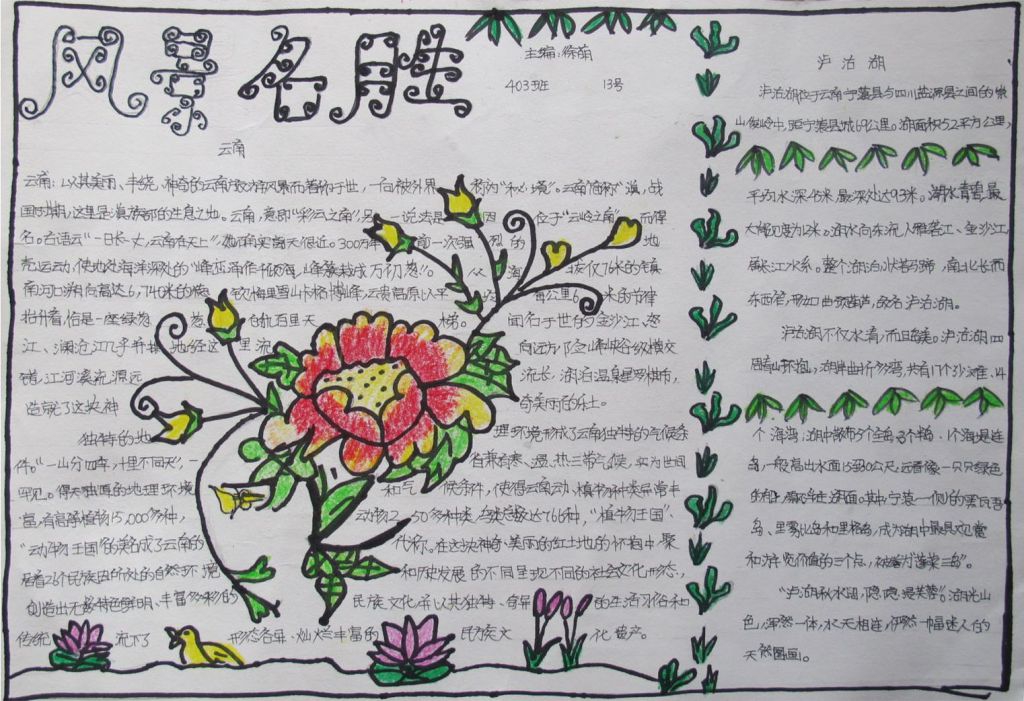 风景名胜
主编:徐萌
403班 13号
云南
云南:以其美丽、丰饶、神奇的云南旅游风景而著称于世,一向被外界称为“秘境”。云南简称“滇,战
国时期,这里是滇族部的生息之地。云南,意即“彩云之南”,另一说法是因位于“云岭之南”而得
名。古语云“一日长一丈,云南在天上”,300万年前一次强烈的地
壳运动,使地处海洋深处的
江、澜沧江几乎并排地经这里流向远方
错,江河溪流源远流长,湖泊温泉星罗棋布,
造就了这块神奇美丽的乐土。
独特的地理环境形成了云南独特的气候条
件。“一山分四季,十里不同天”,省兼有寒、温、热三带气候,实为世间
罕见。得天独厚的地理环境和气候条件,使得云南动、植物种类异常丰
富,有高等植物15,000多种,“植物王国”、
“动物王国”的美名成了云南的代称。在这块神奇、美丽的红土地的怀抱中,聚
居着26个民族因所处的自然环境和历史发展的不同呈现不同的社会文化形态,
创造出无数特色鲜明、丰富多彩的民族文化并以其独特、奇异的生活习俗和
传统流下了形态各异、灿烂丰富的民族文化遗产。
泸沽湖
泸沽湖位于云南宁蒗县与四川盐源县之间的崇
山峻岭中,距宁蒗县城69公里。湖面积52平方公里,
平均水深45米,最深处达93米。湖水清澈,最
大能见度为12米。湖水向东流入雅砻江、金沙江,
属长江水系。整个湖泊,状若马蹄,南北长而
东西窄,形如曲颈葫芦,故名泸沽湖。
泸沽湖不仅水清,而且岛美。泸沽湖四
周青山环抱,湖岸曲折多湾,共有17个沙滩、14
个海湾;湖中散布5个全岛、3个半岛、1个海堤连
岛,一般高出水面15到30公尺,远看像一只只绿色
的船,飘浮在湖面。其中宁蒗一侧的黑瓦吾
岛、里务比岛和里格岛,成为湖中最具观赏
和游览价值的三个点,被誉为“蓬莱三岛”。
“泸湖秋水间,隐隐浸芙蓉”。湖光山
色,浑然一体,水天相连,俨然一幅迷人的
天然图画。